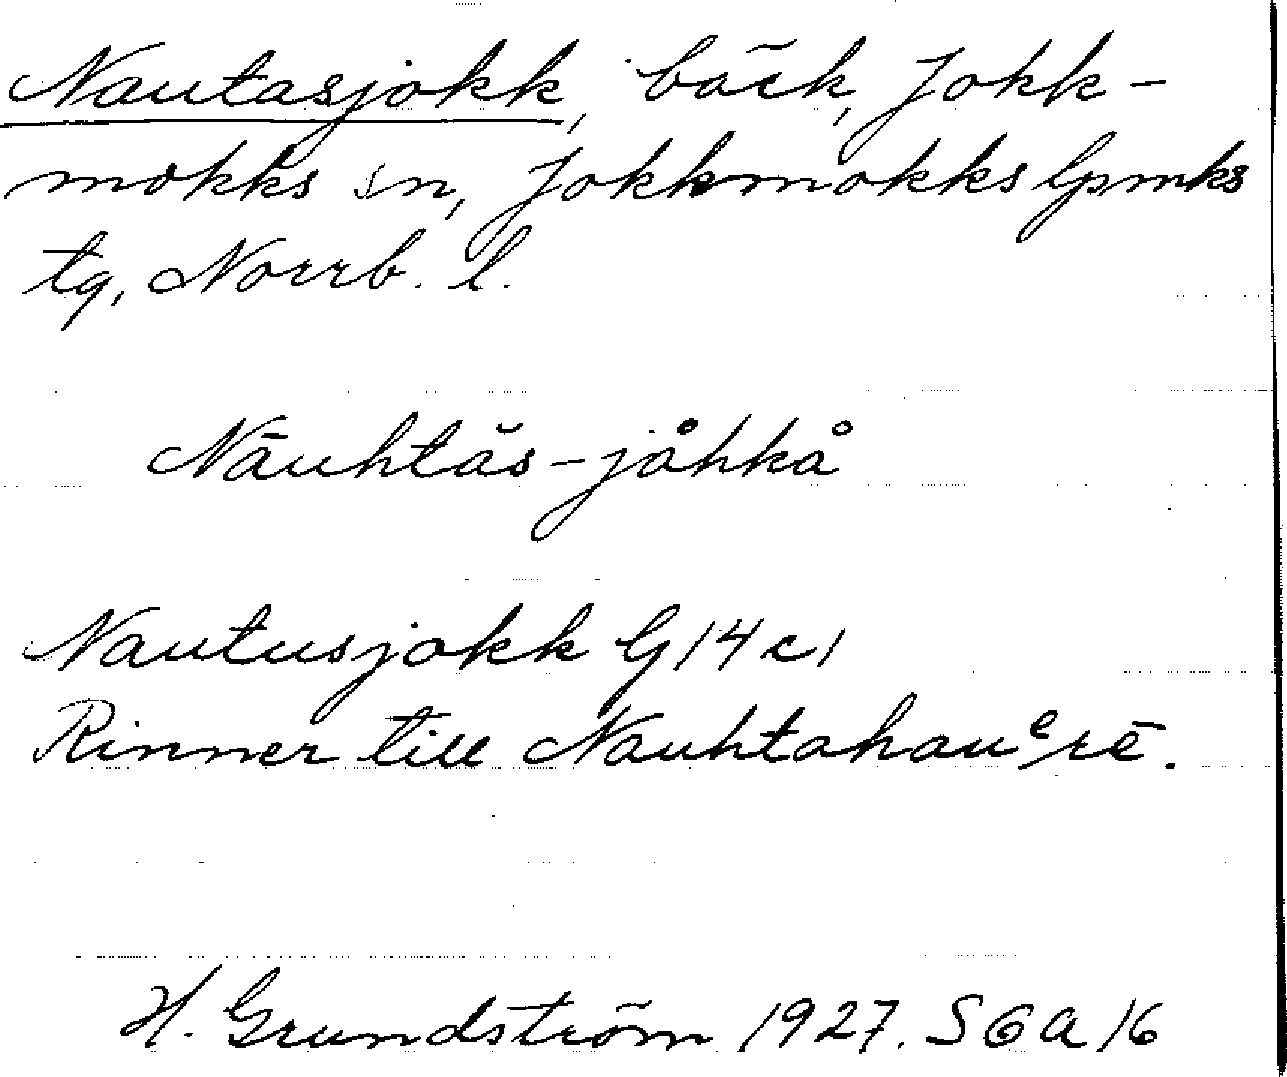 Nautasjokk, bäck, Jokk-
mokks sn, Jokkmokks lpmks
tg, Norrb. l.
Nāuhtăs-jåhkå
Nautusjokk G14c1
Rinner till Nauhtahauᵉrē.
H. Grundström 1927. S6A16